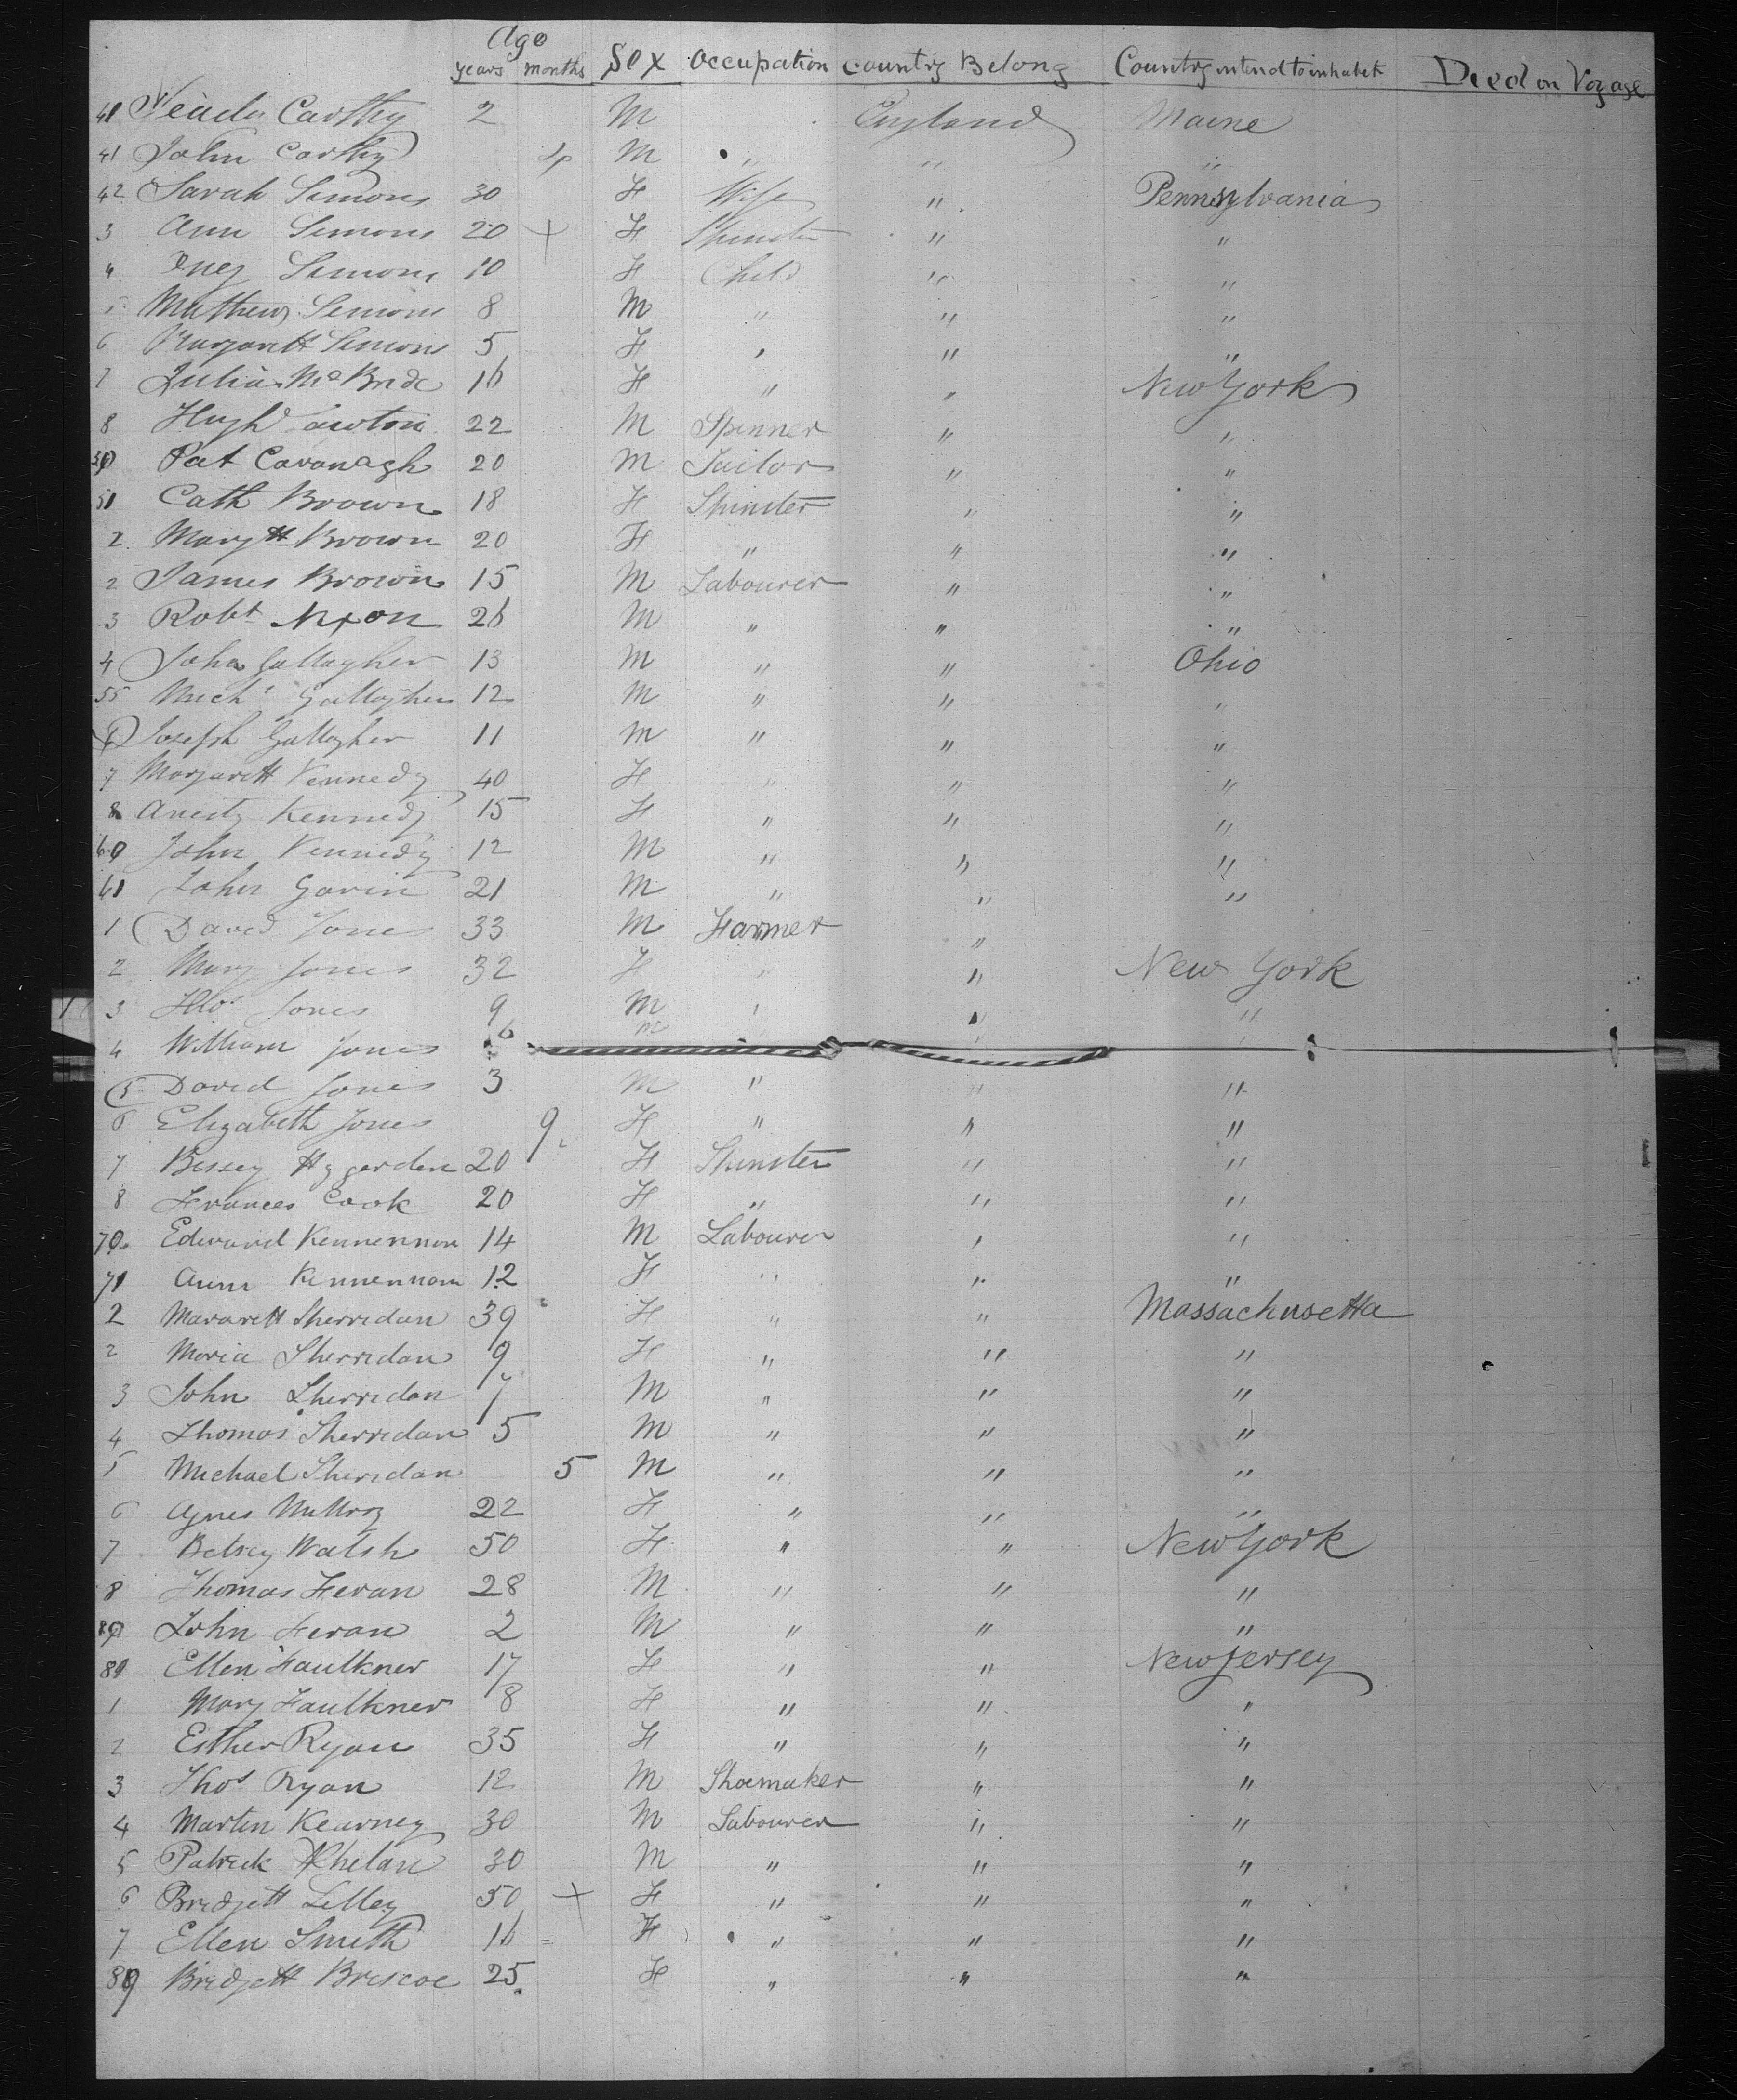 Age
years months Sex Occupation Country Belong Country intend to inhabit Died on Voyage
Carthy 2 M England Maine
41 John Carthy 4 M " " "
42 Sarah Simons 30 F Wife " Pennsylvania
3 Ann Simons 20 + F Spinster " "
4 Simons 10 F Child " "
5 Mathew Simons 8 M " " "
6 Margarett Simons 5 F " " "
7 Julia McBride 16 F " " New York
8 Hugh 22 M Spinner " "
Pat Cavanagh 20 M Tailor " "
51 Cath Brown 18 F Spinster " "
2 Margtt Brown 20 F " " "
2 James Brown 15 M Labourer " "
3 Robt Nixon 26 M " " "
4 John Gallagher 13 M " " Ohio
55 Michl Gallagher 12 M " " "
6 Joseph Gallagher 11 M " " "
7 Margarett Kennedy 40 F " " "
8 Kennedy 15 F " " "
60 John Kennedy 12 M " " "
61 John Gavin 21 M " " "
1 David Jones 33 M Farmer "
2 Mary Jones 32 F " " New York
3 Thos Jones 9 M " " "
4 William Jones 6 M " "
5 David Jones 3 M " " "
6 Elizabeth Jones 9 F " " "
7 Bessey 20 F Spinster " "
8 Frances Cook 20 F " " "
70 Edward Kennennon 14 M Labourer " "
71 Ann Kennennon 12 F " " "
2 Mararett Sherridan 39 F " " Massachusetts
2 Moria Sherridan 9 F " " "
3 John Sherridan 7 M " " "
4 Thomas Sherridan 5 M " " "
5 Michael Sheridan 5 M " " "
6 Agnes 22 F " " "
7 Betsey Walsh 50 F " " New York
8 Thomas Feran 28 M " " "
John Feran 2 M " " "
81 Ellen Faulkner 17 F " " New Jersey
1 Mary Faulkner 8 F " " "
2 Esther Ryan 35 F " " "
3 Thos Ryan 12 M Shoemaker " "
4 Martin Kearney 30 M Labourer " "
5 Patrick Phelan 30 M " " "
6 Bridgett Lilley 50 + F " " "
7 Ellen Smith 16 F " " "
89 Bridgett Briscoe 25 F " " "